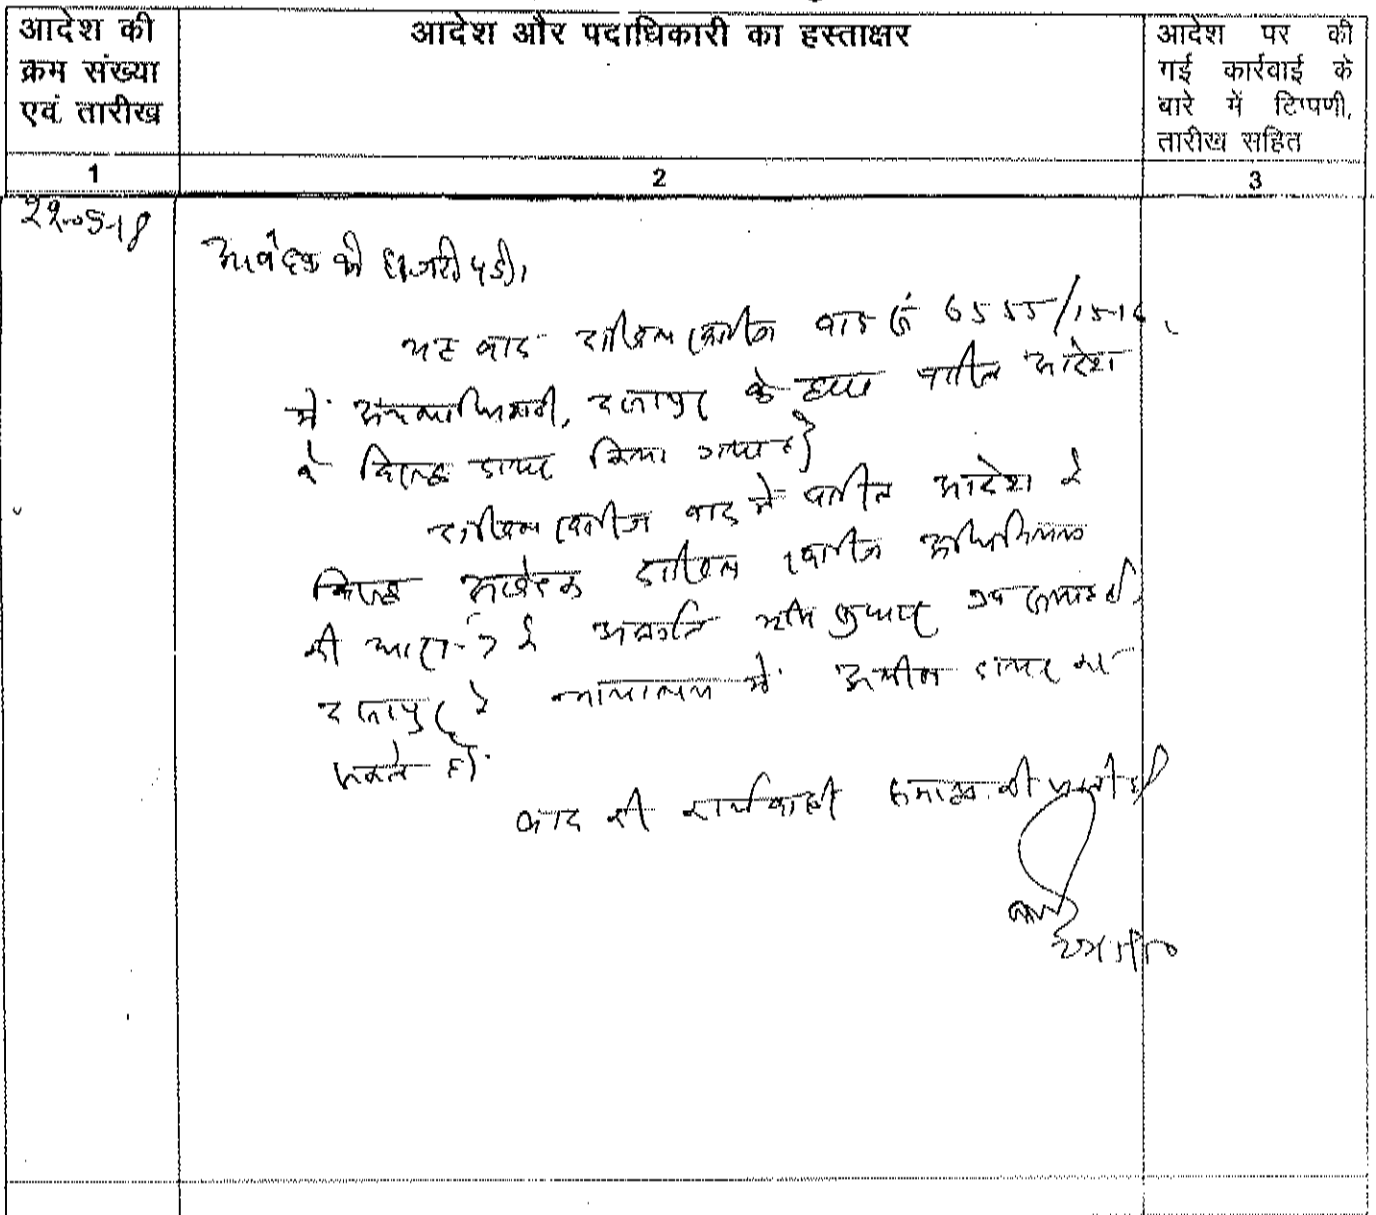 आदेश की
क्रम संख्या
एवं तारीख
आदेश और पदाधिकारी का हस्ताक्षर
आदेश पर की
गई कार्रवाई के
बारे में टिप्पणी,
तारीख सहित
1
2
3
22-05-18
आवेदक की हाजरी पड़ी।
यह वाद दाखिल खारीज वाद सं 6555/15-16
में अंचलाधिकारी, के द्वारा पारित आदेश
के विरूद्ध दायर किया गया है
दाखिल खारीज वाद में पारित आदेश के
विरूद्ध आवेदक दाखिल खारीज अधिनियम
की धारा-7 के अन्तर्गत भूमि सुधार उप समाहर्ता,
के न्यायालय में अपील दायर कर
सकते हैं।
वाद की कार्यवाही समाप्त की जाती है।